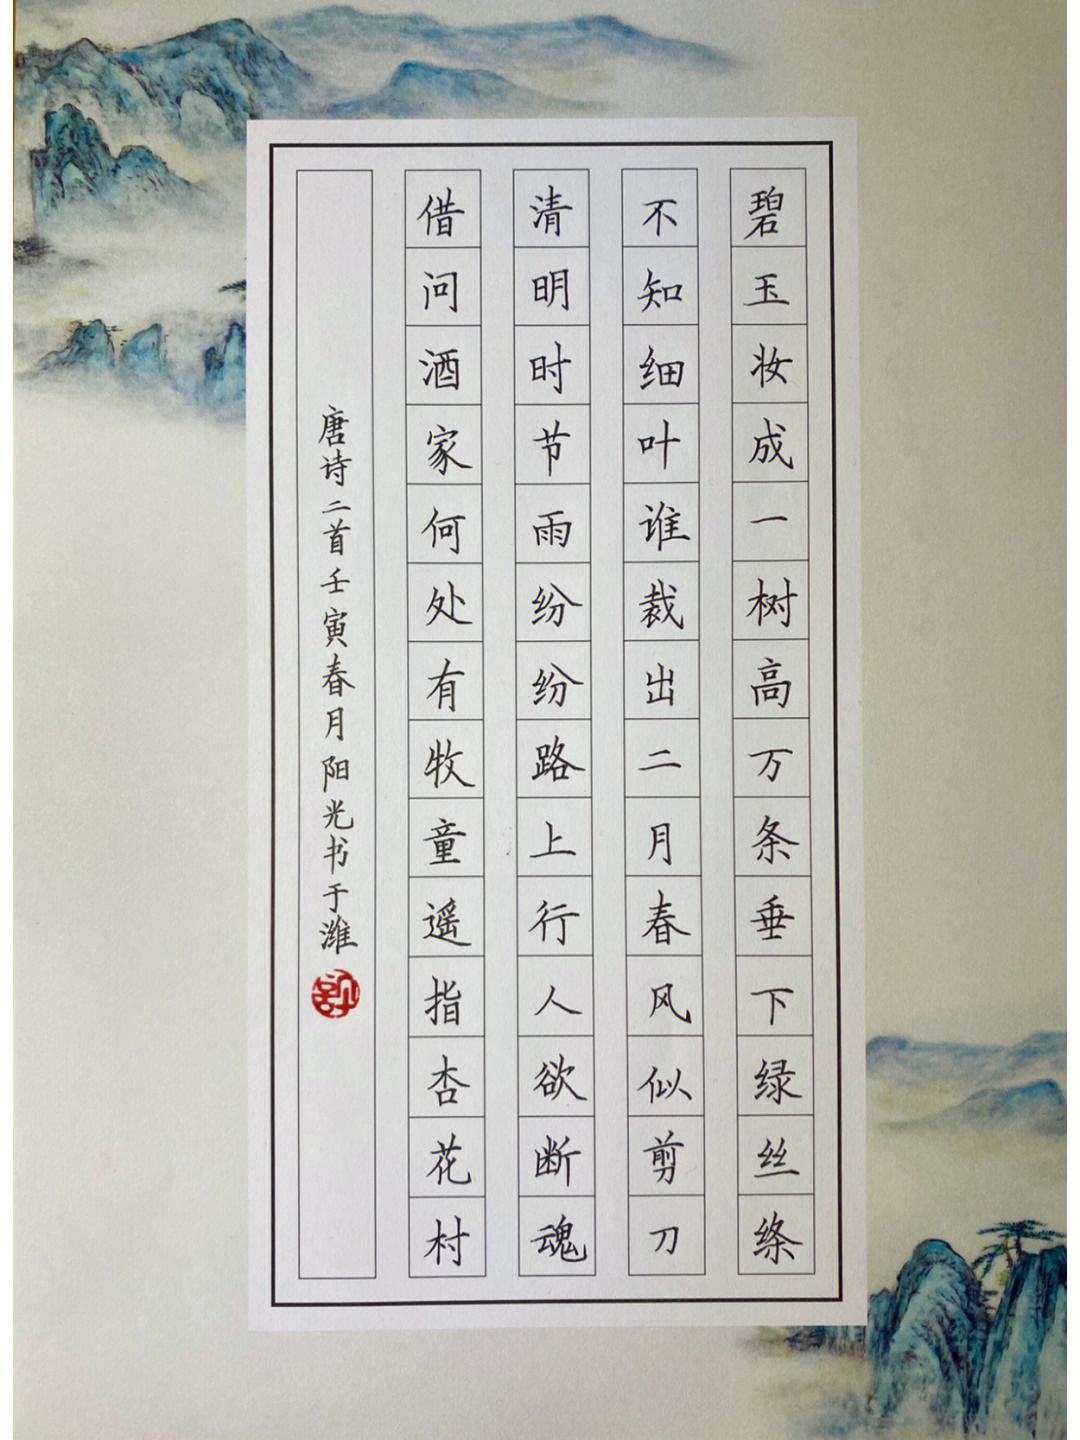 碧玉妆成一树高万条垂下绿丝绦
不知细叶谁裁出二月春风似剪刀
清明时节雨纷纷路上行人欲断魂
借问酒家何处有牧童遥指杏花村
唐诗二首壬寅春月阳光书于潍